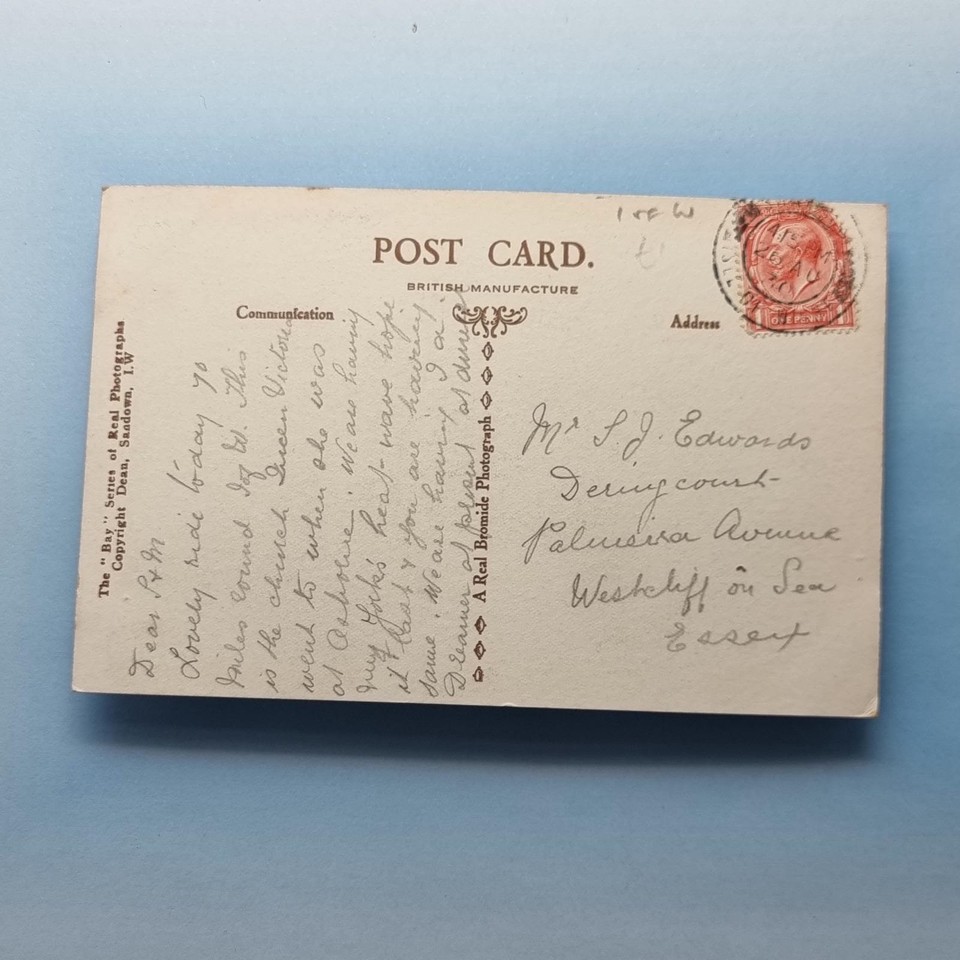 1 of W
£1
POST CARD.
BRITISH MANUFACTURE
Communication
Address
ONE PENNY
The "Bay" Series of Real Photographs
Copyright Dean, Sandown, I.W
A Real Bromide Photograph
Dear S & M
Lovely ride to day 70
Miles round I of W. This
is the church Queen Victoria
went to when she was
at Osborne. We are having
heat-wave hope
it last & you are having
same. We are having
at present at dinner
Mr S. J. Edwards
Deringcourt
Palmeira Avenue
Westcliff on Sea
Essex